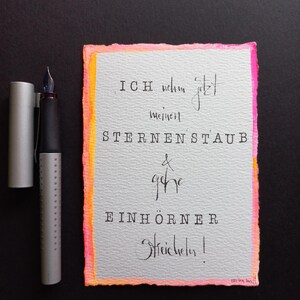 ICH nehm jetzt
meinen
STERNENSTAUB
&
gehe
EINHÖRNER
streicheln!